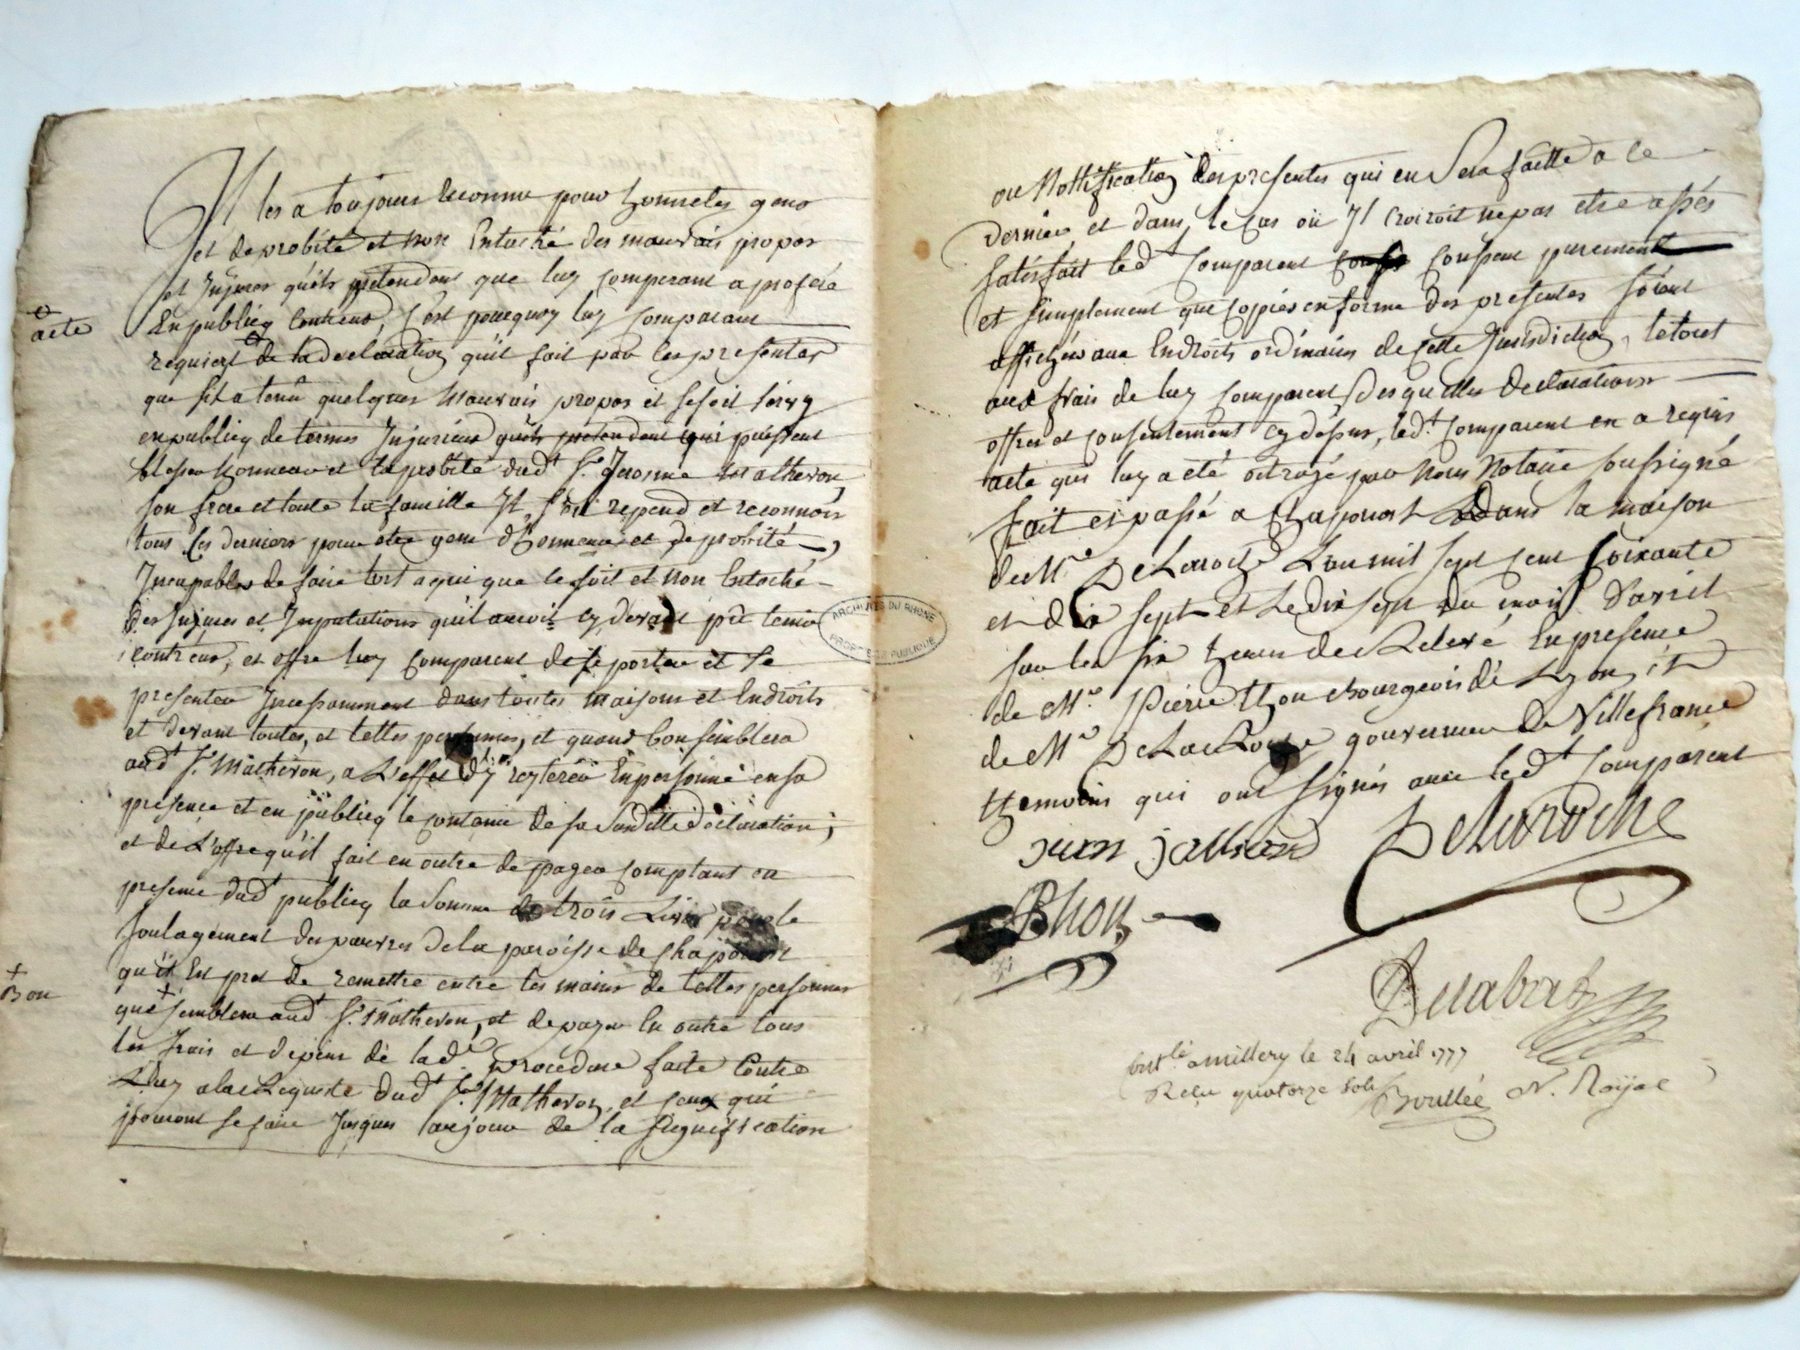 Il les a toujours reconnu pour honnetes gens
et de probité et non Entaché des mauvais propos
et Injures quils pretendent que luy comparant a proferé
En publicq Contreux, C'est pourquoy luy Comparant
acte
requiert de la declaration qu'il fait par les presentes
que s'il a tenû quelques Mauvais propos et sesoit servy
en publicq de termes Injurieux quils pretendent qui puissent
blesser honneur et la probité dudt Sr. Jerosme Matheron,
son frere et toute la famille Il s'en repend et reconnois
tous ces derniers pour etre gens d'honneur et de probité,
Incapables de faire tort a qui que le soit et non Entaché
des Injures et Imputations qu'il auroit cy devant pû tenir
contreux, et offre luy Comparent de se porter et se
presenter Incessamment dans toutes maisons et Endroits
et devant toutes et telles personnes, et quand bon semblera
audt Sr. Matheron, a L'effet d'y reyterer En personne en sa
presence et en publicq le contenu de sa susditte déclaration;
et de L'offre qu'il fait en outre de payer comptant en
presence dudt publicq la Somme de trois Livres pour le
soulagement des pauvres de la paroisse de Chaponost
qu'il En pret de remettre entre les mains de telles personnes
Bon
que semblera audt Sr. Matheron, et de payer En outre tous
les frais et depens de lade. procedure faite Contre
Luy a la Requiste dudt Sr. Matheron, et ceux qui
pouront se faire Jusques au jour de la signiffication
ou Nottification des presentes qui en Sera faitte a ce
dernier et dans le Cas où Il croiroit ne pas etre assés
satisfait ledt Comparent consent purement
et simplement que Copies en forme des presentes soient
affichés aux Endroits ordinaires de Cette Jurisdiction, le tout
aux frais de luy Comparent, Desquelles declarations
offres et consentement cy dessus, ledt. Comparent en a requis
acte qui luy a eté octroyé par Nous Notaire soussigné
fait et passé a Chaponost Dans la maison
de Me. DeLaroche L'an mil sept cent soixante
et dix sept et Le dix sept du mois d'avril
sur les six heures de Relevé En presence
de Mr. Pierre Thon bourgeois de Lyon, et
de Mr. DeLaRoche gouverneur de Villefrance
themoins qui ont signés avec ledt Comparent
jean jalliard
DeLaroche
Thon
Decabrat
Contlé. a millery le 24 avril 1777
Reçu quatorze sols Boullée N. Royal
ARCHIVES DU RHONE
PROPRIETE PUBLIQUE